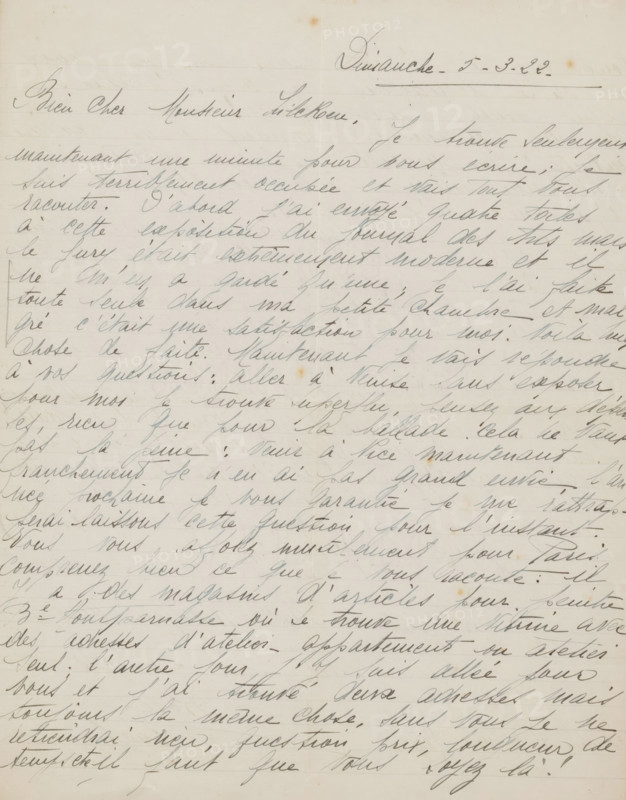 Dimanche - 5 - 3 - 22 -
Bien cher Monsieur Zilcken,
Je trouve seulement
maintenant une minute pour vous ecrire; je
suis terriblement occupée et vais tout vous
raconter. D'abord j'ai envoyé quatre toiles
à cette exposition du Journal des Arts mais
le Jury était extrèmement moderne et il
ne m'en a gardé qu'une, je l'ai faite
toute seule dans ma petite chambre et mal
gré c'était une satisfaction pour moi. Voilà une
chose de faite. Maintenant je vais repondre
à vos questions: aller à Venise sans exposer
pour moi je trouve superflu, pensez aux
rien que pour la ballade. Cela ne vaut
pas la peine: Venir à Nice maintenant
franchement je n'en ai pas grand envie l'an
née prochaine je vous garantie je me rattrap-
perai laissons cette question pour l'instant.
Vous vous inutilement pour Paris
comprenez bien ce que je vous raconte: il
y a des magasins d'articles pour peintre
Montparnasse où je trouve une avec
des adresses d'atelier - appartement ou atelier
seul. l'autre jour j'y suis allée pour
vous et j'ai trouvé deux adresses mais
toujours la même chose, sans vous je ne
retiendrai rien, question prix, longueur de
temps il faut que vous soyez là!
PHOTO12